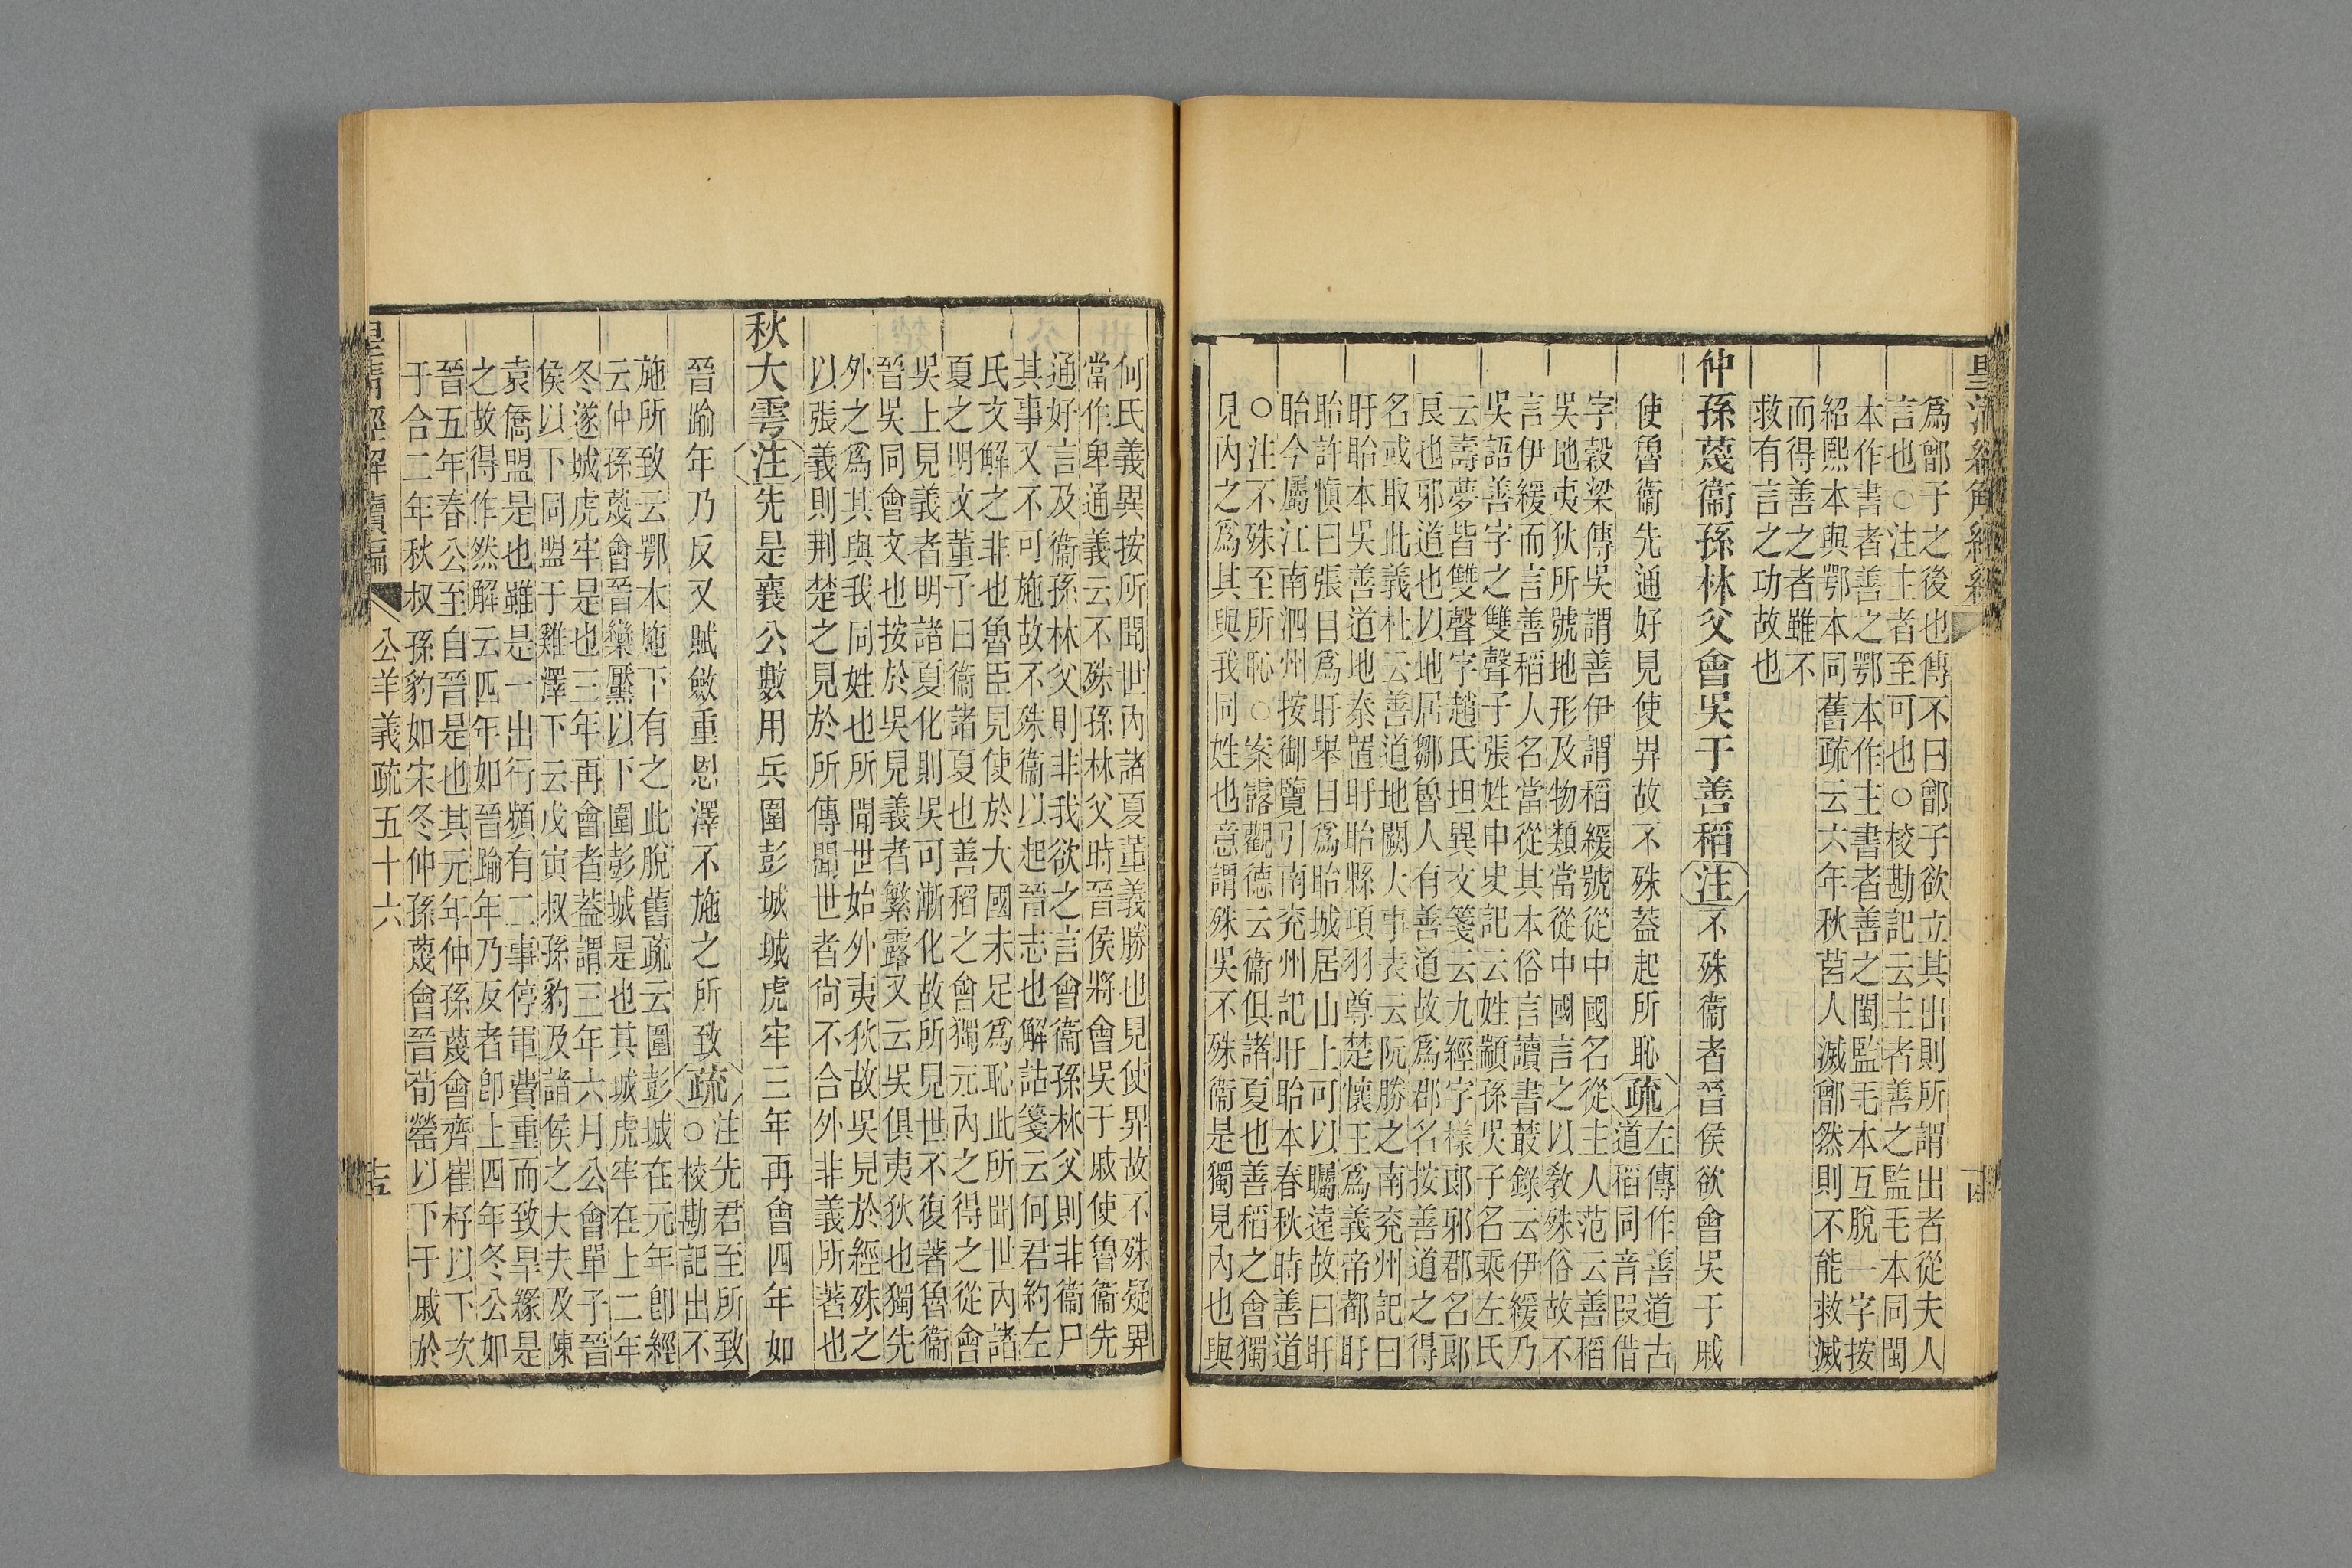 爲鄫子之後也傳不曰鄫子欲立其出則所謂出者從夫人
言也○注主者至可也○校勘記云主者善之監毛本同閩
本作書者善之鄂本作主書者善之閩監毛本互脫一字按
紹熙本與鄂本同舊疏云六年秋莒人滅鄫然則不能救滅
而得善之者雖不
救有言之功故也
仲孫蔑衞孫林父會吳于善稻注不殊衞者晉侯欲會吳于戚
使魯衞先通好見使畀故不殊蓋起所恥疏左傳作善道古
道稻同音叚借
字穀梁傳吳謂善伊謂稻緩號從中國名從主人范云善稻
吳地夷狄所號地形及物類當從中國言之以敎殊俗故不
言伊緩而言善稻人名當從其本俗言讀書叢錄云伊緩乃
吳語善字之雙聲子張姓申史記云姓顓孫吳子名乘左氏
云壽夢皆雙聲字趙氏坦異文箋云九經字樣郞邪郡名郞
良也邪道也以地居鄒魯人有善道故爲郡名按善道之得
名或取此義杜云善道地闕大事表云阮勝之南兖州記曰
盱眙本吳善道地秦置盱眙縣項羽尊楚懷王爲義帝都盱
眙許愼曰張目爲盱舉目爲眙城居山上可以矚遠故曰盱
眙今屬江南泗州按御覽引南兖州記盱眙本春秋時善道
○注不殊至所恥○案露觀德云衞俱諸夏也善稻之會獨
見內之爲其與我同姓也意謂殊吳不殊衞是獨見內也與
何氏義異按所聞世內諸夏董義勝也見使畀故不殊疑畀
當作卑通義云不殊孫林父時晉侯將會吳于戚使魯衞先
通好言及衞孫林父則非我欲之言會衞孫林父則非衞尸
其事又不可施故不殊衞以起晉志也解詁箋云何君約左
氏文解之非也魯臣見使於大國未足爲恥此所聞世內諸
夏之明文董子曰衞諸夏也善稻之會獨元內之得之從會
吳上見義者明諸夏化則吳可漸化故所見世不復著魯衞
晉吳同會文也按於吳見義者繁露又云吳俱夷狄也獨先
外之爲其與我同姓也所聞世始外夷狄故吳見於經殊之
以張義則荆楚之見於所傳聞世者尙不合外非義所著也
秋大雩注先是襄公數用兵圍彭城城虎牢三年再會四年如
晉踰年乃反又賦斂重恩澤不施之所致疏注先君至所致
○校勘記出不
施所致云鄂本施下有之此脫舊疏云圍彭城在元年卽經
云仲孫蔑會晉欒黶以下圍彭城是也其城虎牢在上二年
冬遂城虎牢是也三年再會者蓋謂三年六月公會單子晉
侯以下同盟于雞澤下云戊寅叔孫豹及諸侯之大夫及陳
袁僑盟是也雖是一出行頻有二事停軍費重而致旱緣是
之故得作然解云四年如晉踰年乃反者卽上四年冬公如
晉五年春公至自晉是也其元年仲孫蔑會齊崔杼以下次
于合二年秋叔孫豹如宋冬仲孫蔑會晉荀罃以下于戚於
皇淸經解續編　公羊義疏五十六